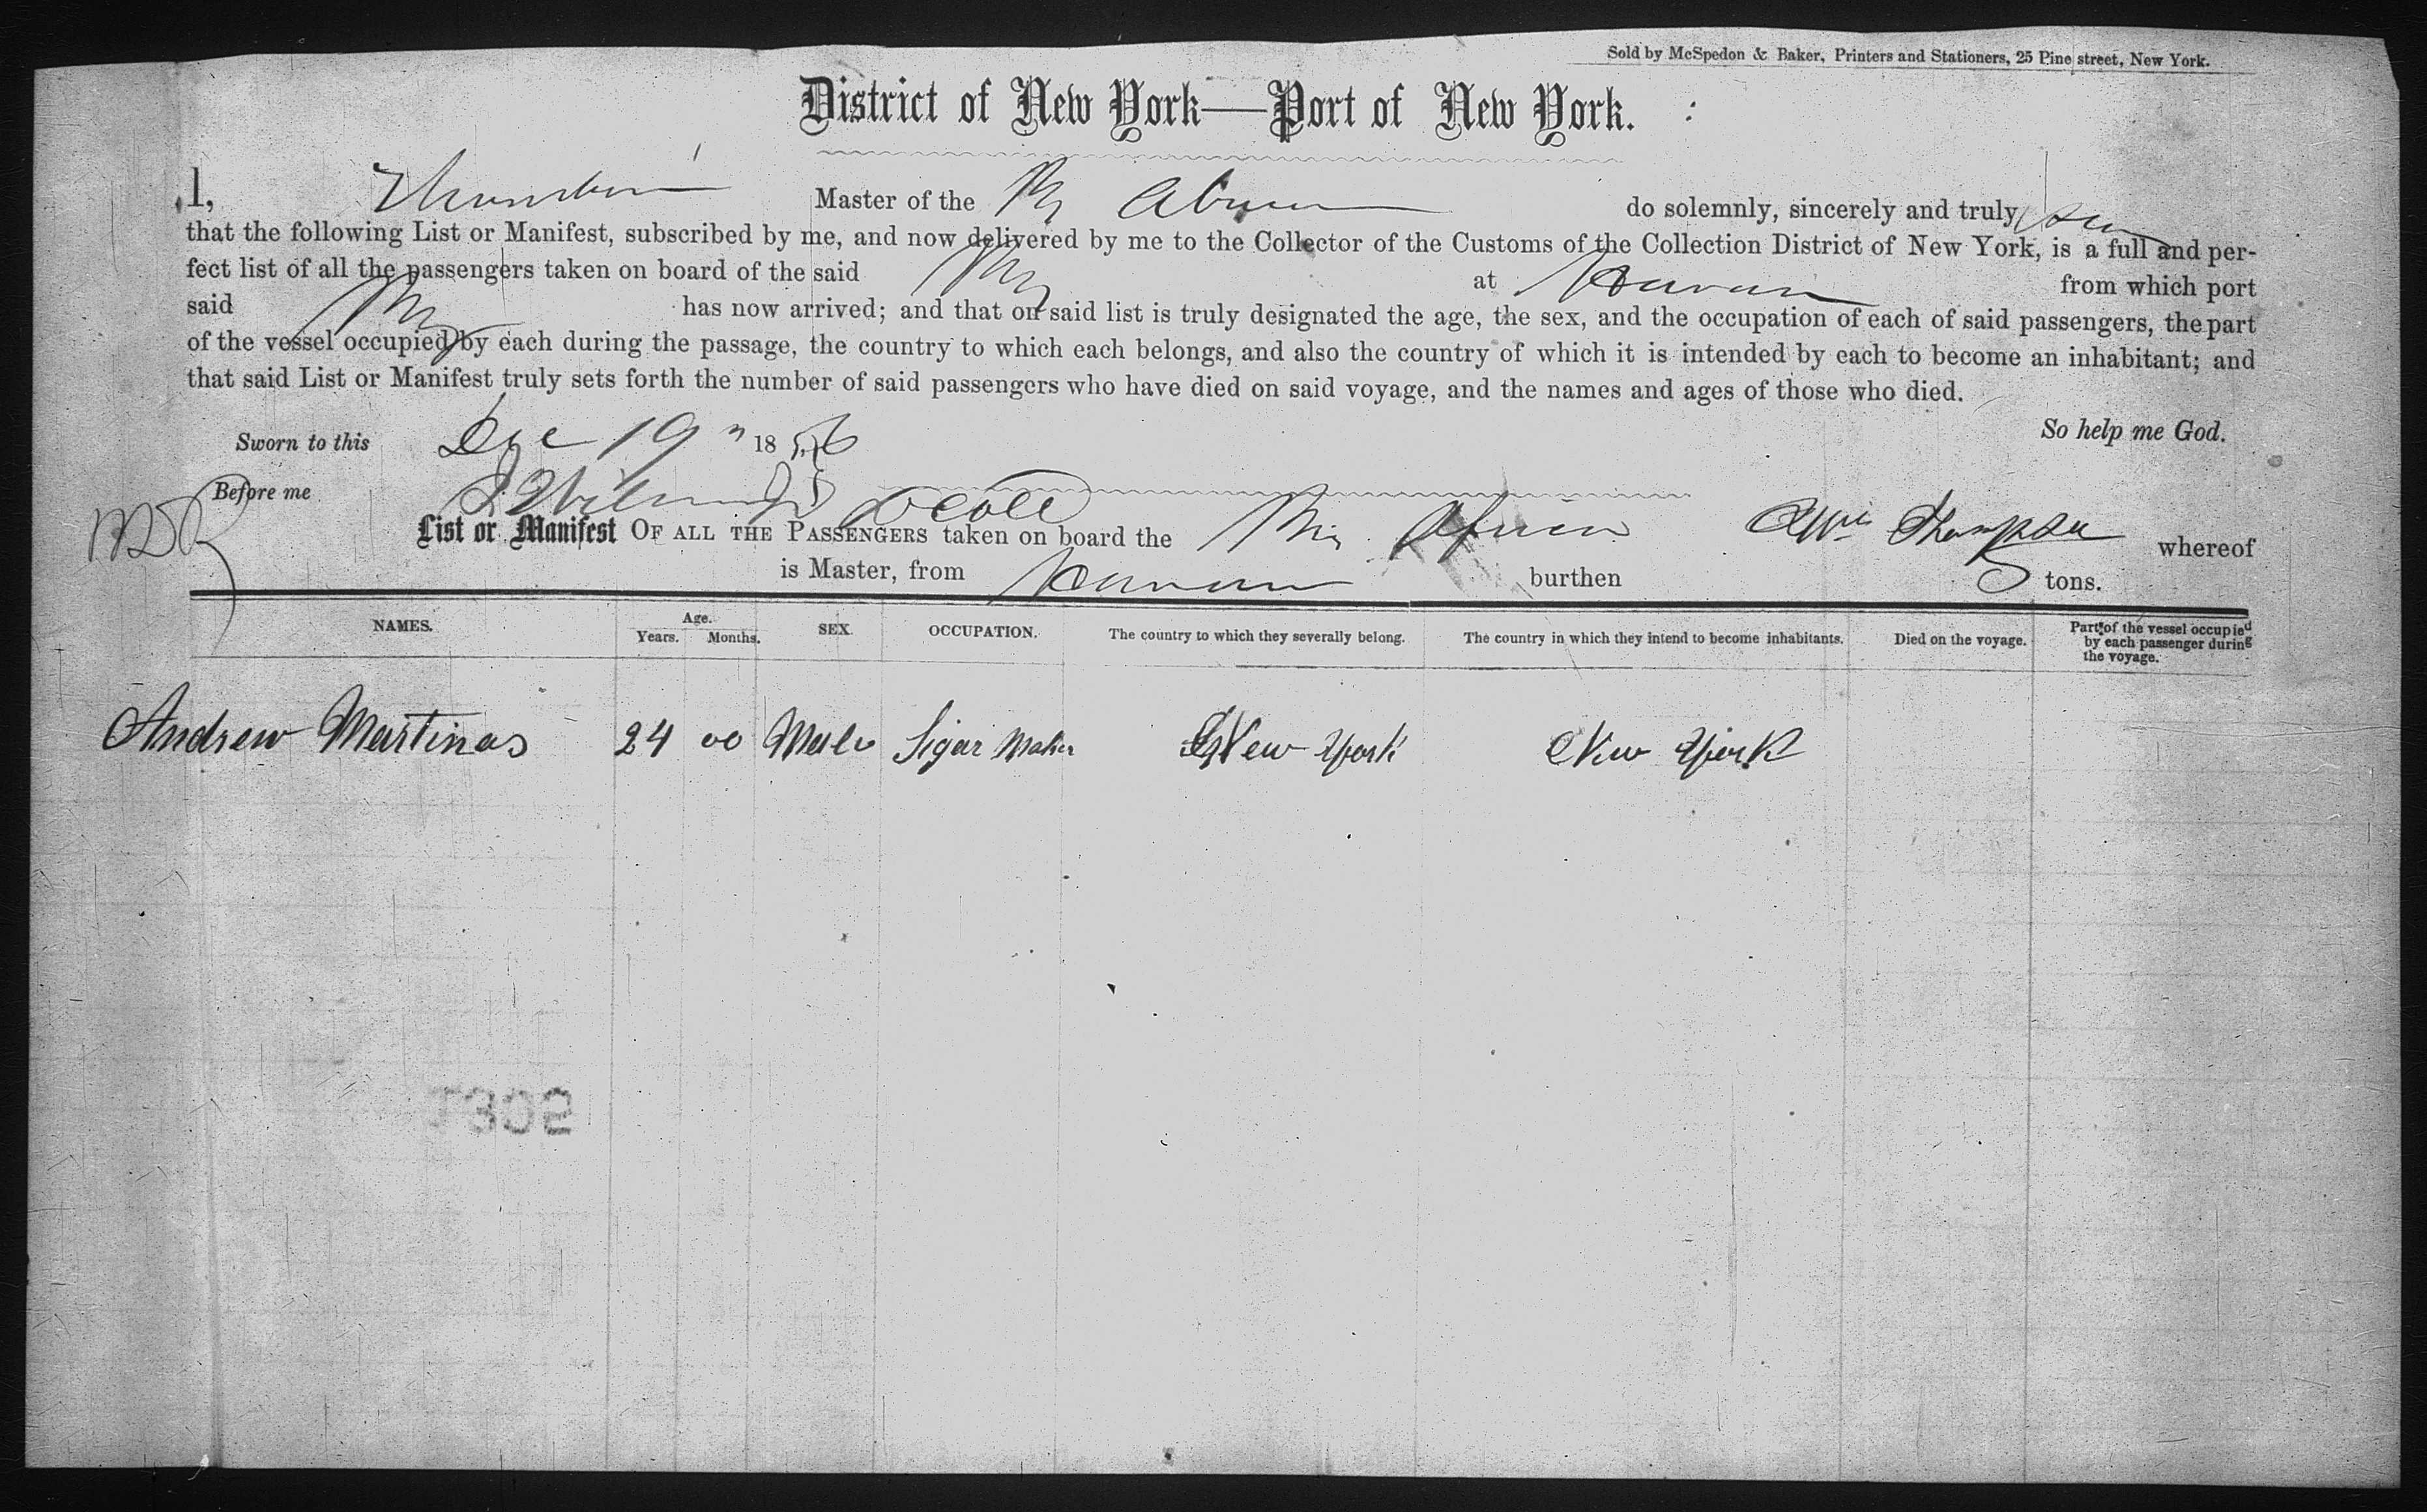 Sold by McSpedon & Baker, Printers and Stationers, 25 Pine street, New York.
District of New York—Port of New York.
I, Master of the do solemnly, sincerely and truly
that the following List or Manifest, subscribed by me, and now delivered by me to the Collector of the Customs of the Collection District of New York, is a full and per-
fect list of all the passengers taken on board of the said at from which port
said has now arrived; and that on said list is truly designated the age, the sex, and the occupation of each of said passengers, the part
of the vessel occupied by each during the passage, the country to which each belongs, and also the country of which it is intended by each to become an inhabitant; and
that said List or Manifest truly sets forth the number of said passengers who have died on said voyage, and the names and ages of those who died.
So help me God.
Sworn to this Dec 19 1856
Before me
List or Manifest OF ALL THE PASSENGERS taken on board the Thompson whereof
is Master, from burthen tons.
NAMES. Age. Years. Months. SEX. OCCUPATION. The country to which they severally belong. The country in which they intend to become inhabitants. Died on the voyage. Part of the vessel occupied by each passenger during the voyage.
Andrew Martinas 24 00 Male Sigar Maker New York New York